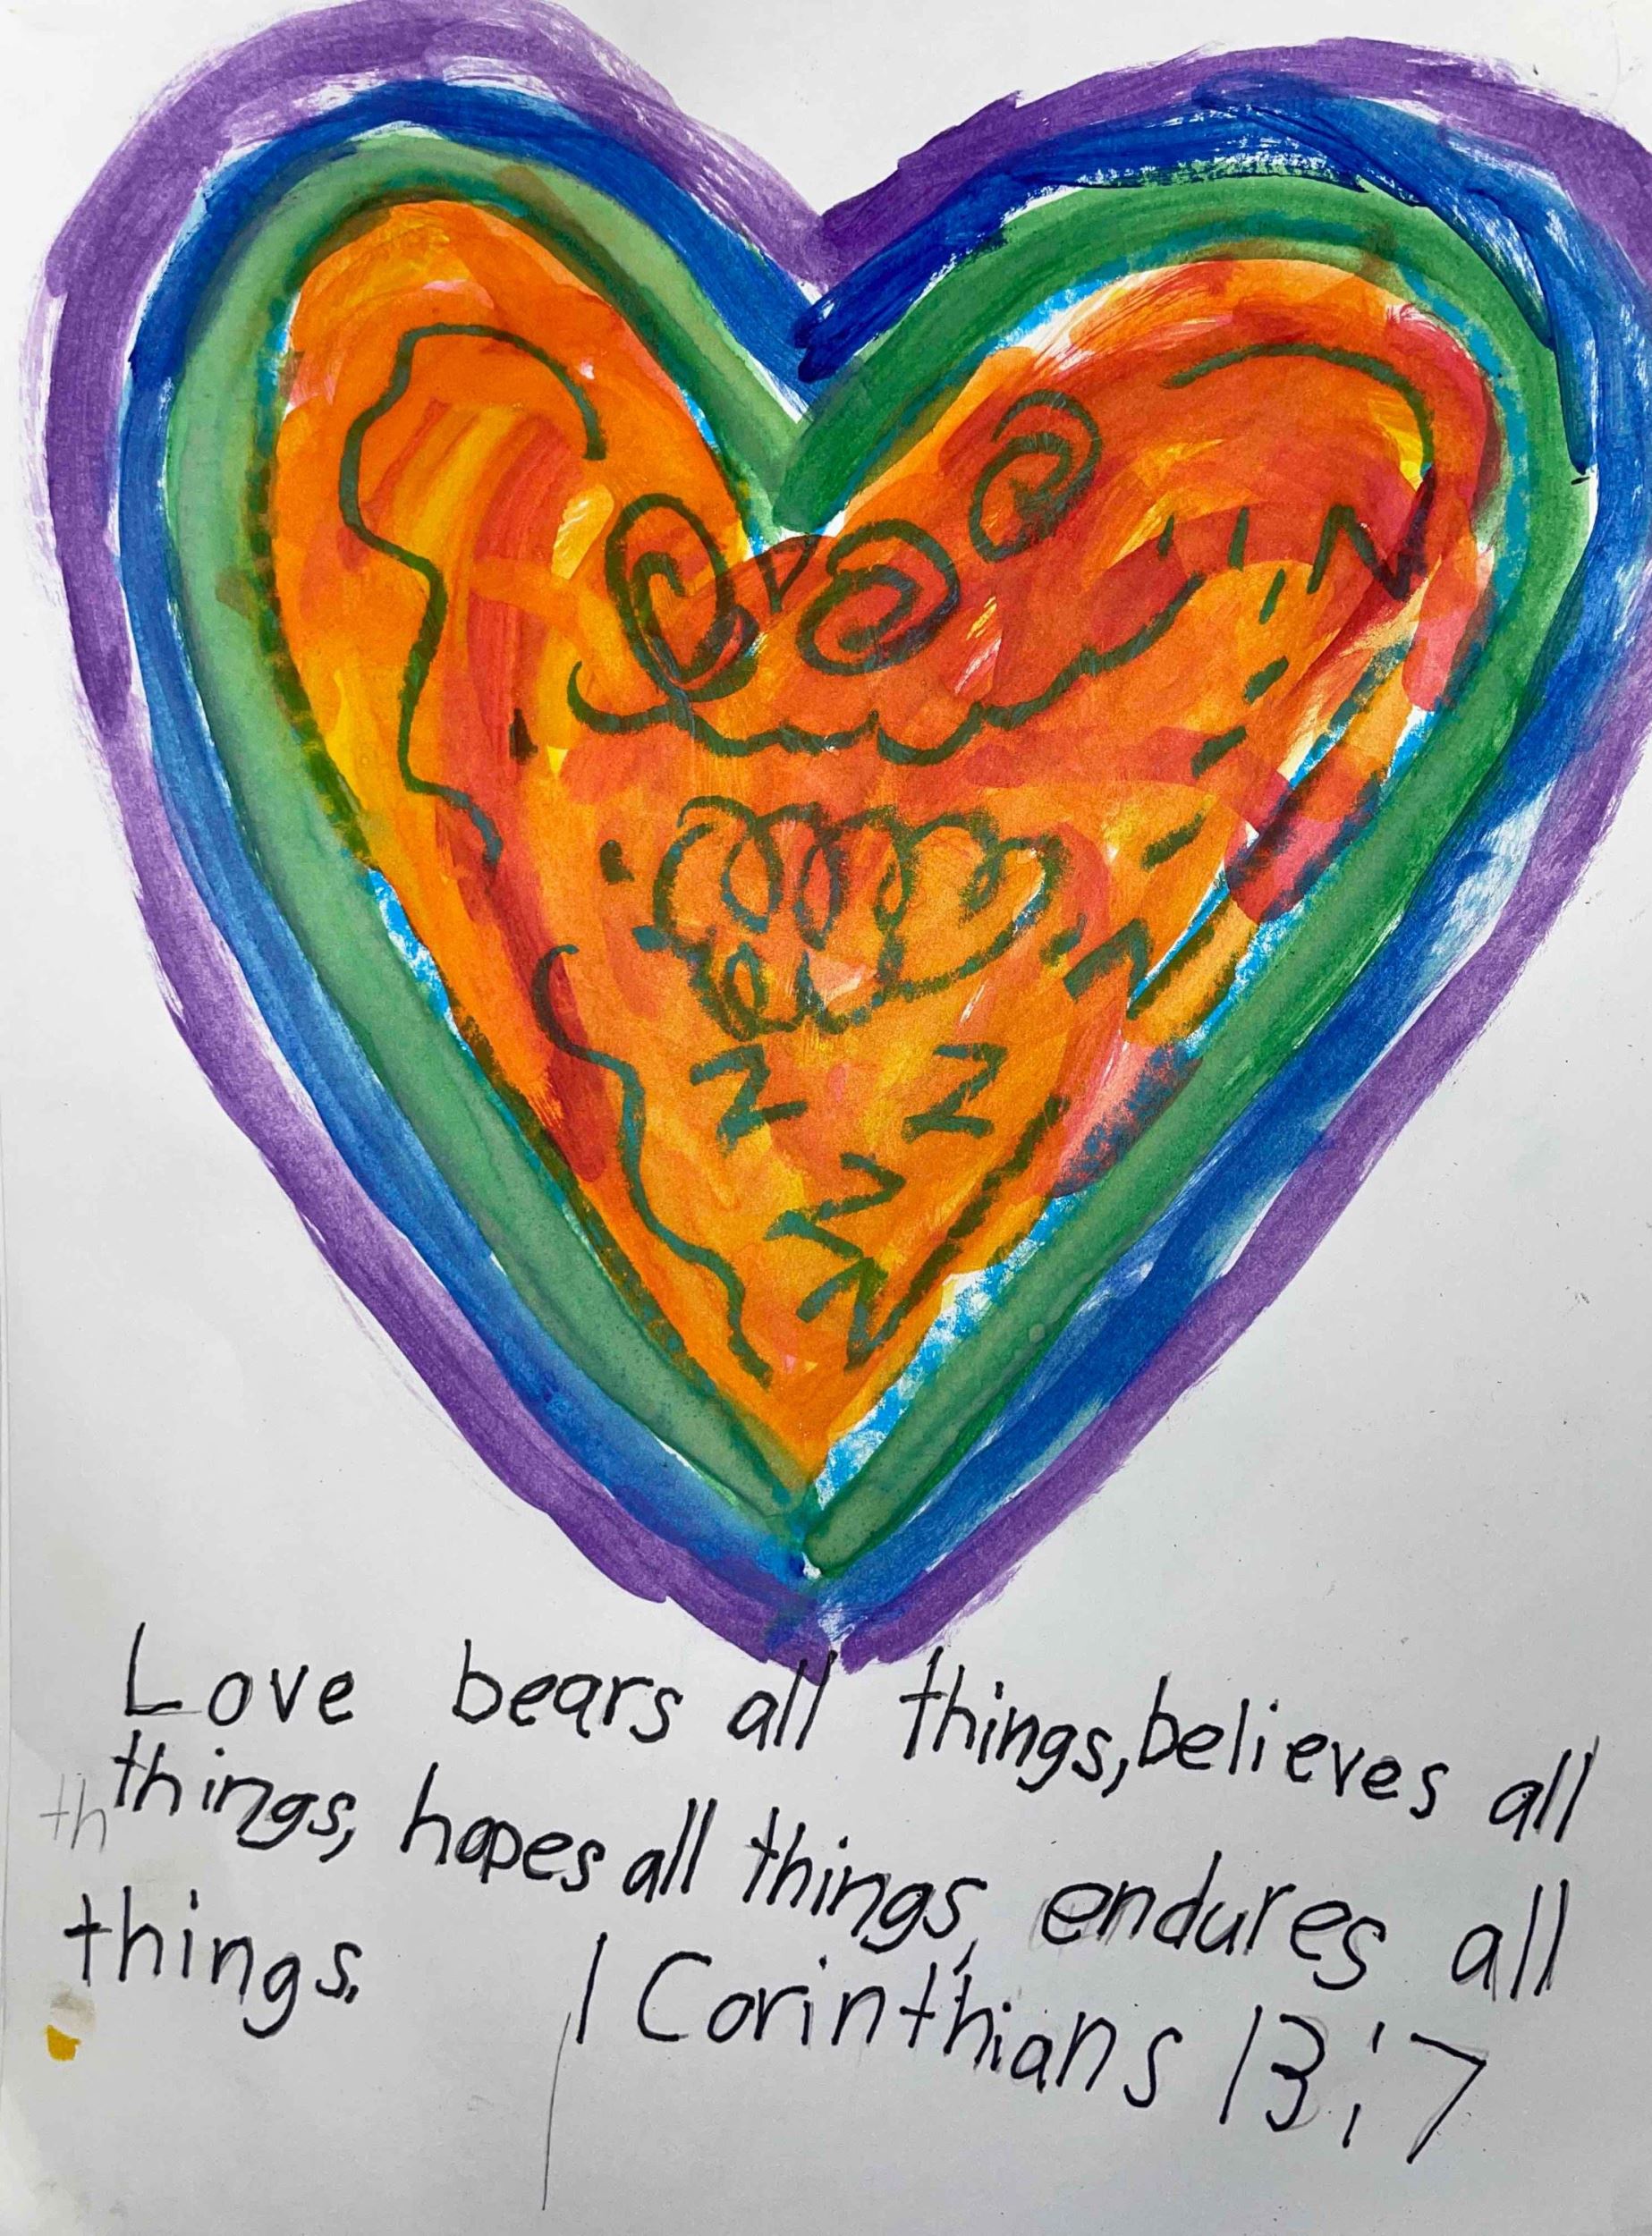 Love bears all things, believes all
th things, hopes all things, endures all
things.
1 Corinthians 13:7